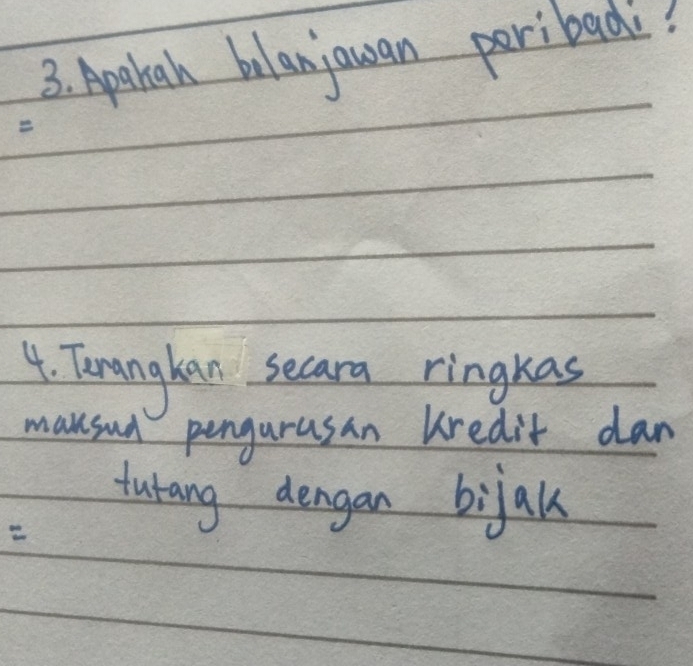 3. Apakah belanjawan peribadi?
=
4. Terangkan secara ringkas
maksud pengurusan kredit dan
tutang dengan bijak
=